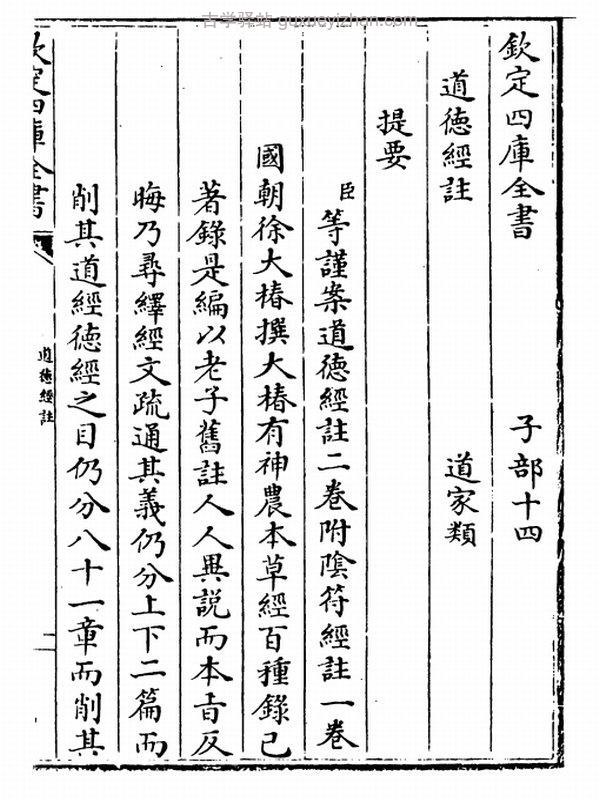 古学驿站 guxueyizhan.com
欽定四庫全書 子部十四
道德經註 道家類
提要
臣等謹案道德經註二卷附陰符經註一卷
國朝徐大椿撰大椿有神農本草經百種錄已
著錄是編以老子舊註人人異説而本㫖反
晦乃尋繹經文疏通其義仍分上下二篇而
削其道經德經之目仍分八十一章而削其
欽定四庫全書
道德經註
一